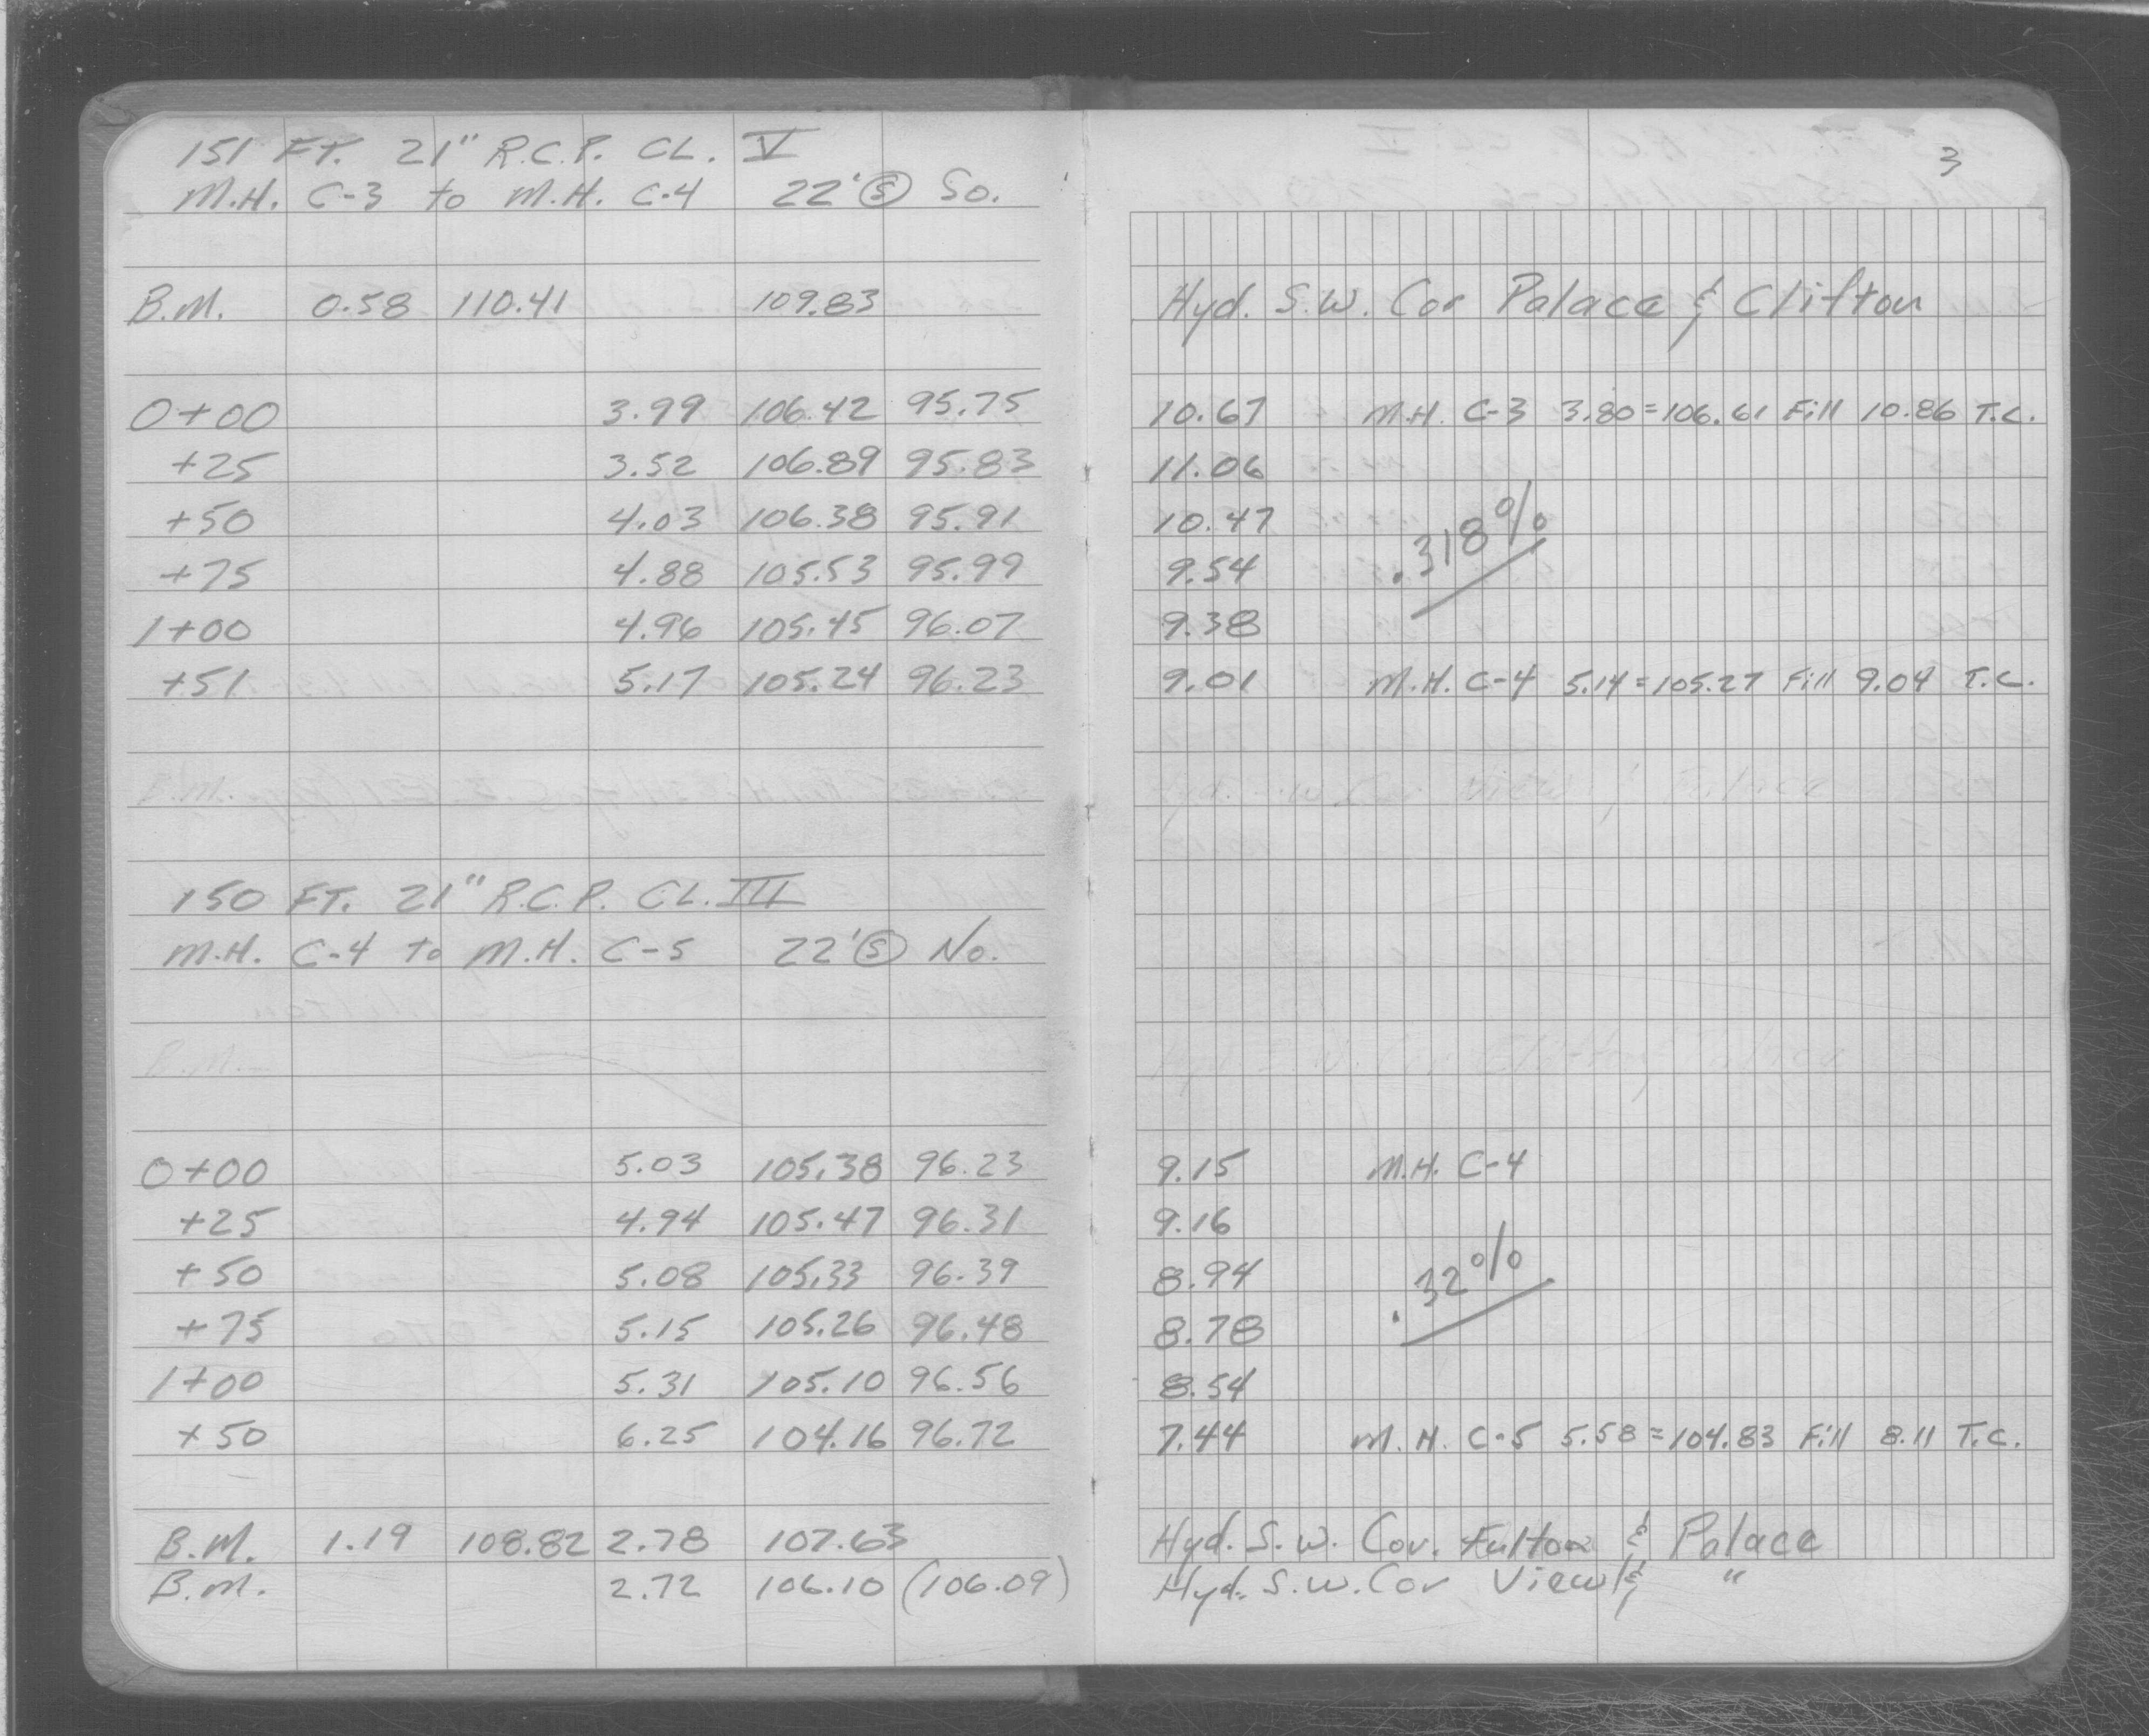 151 FT. 21" R.C.P. CL. V
M.H. C-3 to M.H. C-4 22' Ⓢ So.
B.M. 0.58 110.41 109.83
0+00 3.99 106.42 95.75
+25 3.52 106.89 95.83
+50 4.03 106.38 95.91
+75 4.88 105.53 95.99
1+00 4.96 105.45 96.07
+51 5.17 105.24 96.23
B.M.
150 FT. 21" R.C.P. CL. III
M.H. C-4 to M.H. C-5 22' Ⓢ No.
B.M.
0+00 5.03 105.38 96.23
+25 4.94 105.47 96.31
+50 5.08 105.33 96.39
+75 5.15 105.26 96.48
1+00 5.31 105.10 96.56
+50 6.25 104.16 96.72
B.M. 1.19 108.82 2.78 107.63
B.M. 2.72 106.10 (106.09)
3
Hyd. S.W. Cor Palace & Clifton
10.67 M.H. C-3 3.80=106.61 Fill 10.86 T.C.
11.06
10.47 .318%
9.54
9.38
9.01 M.H. C-4 5.14=105.27 Fill 9.04 T.C.
Hyd. S.W. Cor. View & Palace
9.15 M.H. C-4
9.16
8.94 .32%
8.78
8.54
7.44 M.H. C-5 5.58=104.83 Fill 8.11 T.C.
Hyd. S.W. Cor. Fulton & Palace
Hyd. S.W. Cor View & "